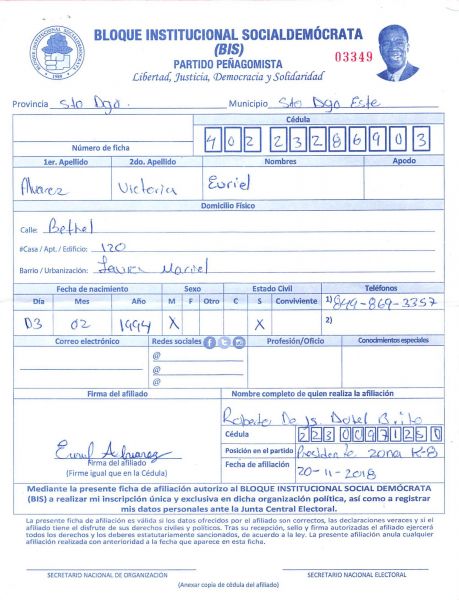 BLOQUE INSTITUCIONAL SOCIALDEMÓCRATA
(BIS)
03349
PARTIDO PEÑAGOMISTA
Libertad, Justicia, Democracia y Solidaridad
BLOQUE INSTITUCIONAL SOCIALDEMOCRATA
Provincia Sto Dgo. Municipio Sto Dgo Este
Cédula
Número de ficha 402 2328690 3
1er. Apellido 2do. Apellido Nombres Apodo
Alvarez Victoria Euriel
Domicilio Físico
Calle: Bethel
#Casa / Apt. / Edificio: 120
Barrio / Urbanización: Mariel
Fecha de nacimiento Sexo Estado Civil Teléfonos
Día Mes Año M F Otro C S Conviviente 1) 849-869-3357
03 02 1994 X X 2)
Correo electrónico Redes sociales Profesión/Oficio Conocimientos especiales
@
@
@
Firma del afiliado Nombre completo de quien realiza la afiliación
Roberto De Js. Dotel Brito
Cédula
223 0097125 0
Posición en el partido Presidente zona K-8
Firma del afiliado
(Firme igual que en la Cédula)
Fecha de afiliación 20-11-2018
Mediante la presente ficha de afiliación autorizo al BLOQUE INSTITUCIONAL SOCIAL DEMÓCRATA
(BIS) a realizar mi inscripción única y exclusiva en dicha organización política, así como a registrar
mis datos personales ante la Junta Central Electoral.
La presente ficha de afiliación es válida si los datos ofrecidos por el afiliado son correctos, las declaraciones veraces y si el
afiliado tiene el disfrute de sus derechos civiles y políticos. Tras su recepción, sello y firma autorizadas el afiliado ejercerá
todos los derechos y los deberes estatutariamente sancionados, de acuerdo a la ley. La presente afiliación anula cualquier
afiliación realizada con anterioridad a la fecha que aparece en esta ficha.
SECRETARIO NACIONAL DE ORGANIZACIÓN SECRETARIO NACIONAL ELECTORAL
(Anexar copia de cédula del afiliado)